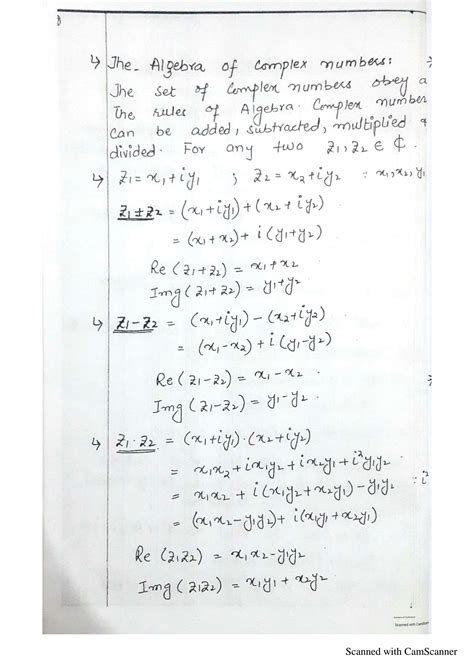 ↳ The Algebra of Complex numbers:
The set of Complex numbers obey a
the rules of Algebra. Complex number
can be added, subtracted, multiplied &
divided. For any two z1, z2 ∈ ₵.
↳ z1 = x1 + iy1 ; z2 = x2 + iy2 ∵ x1, x2, y1
z1 ± z2 = (x1 + iy1) + (x2 + iy2)
= (x1 + x2) + i (y1 + y2)
Re (z1 + z2) = x1 + x2
Img (z1 + z2) = y1 + y2
↳ z1 - z2 = (x1 + iy1) - (x2 + iy2)
= (x1 - x2) + i (y1 - y2)
Re (z1 - z2) = x1 - x2
Img (z1 - z2) = y1 - y2
↳ z1 · z2 = (x1 + iy1) · (x2 + iy2)
= x1x2 + ix1y2 + ix2y1 + i²y1y2
= x1x2 + i (x1y2 + x2y1) - y1y2 ∵ i²
= (x1x2 - y1y2) + i (x1y1 + x2y1)
Re (z1z2) = x1x2 - y1y2
Img (z1z2) = x1y1 + x2y2
Scanned with CamScanner
Scanned with CamScanner